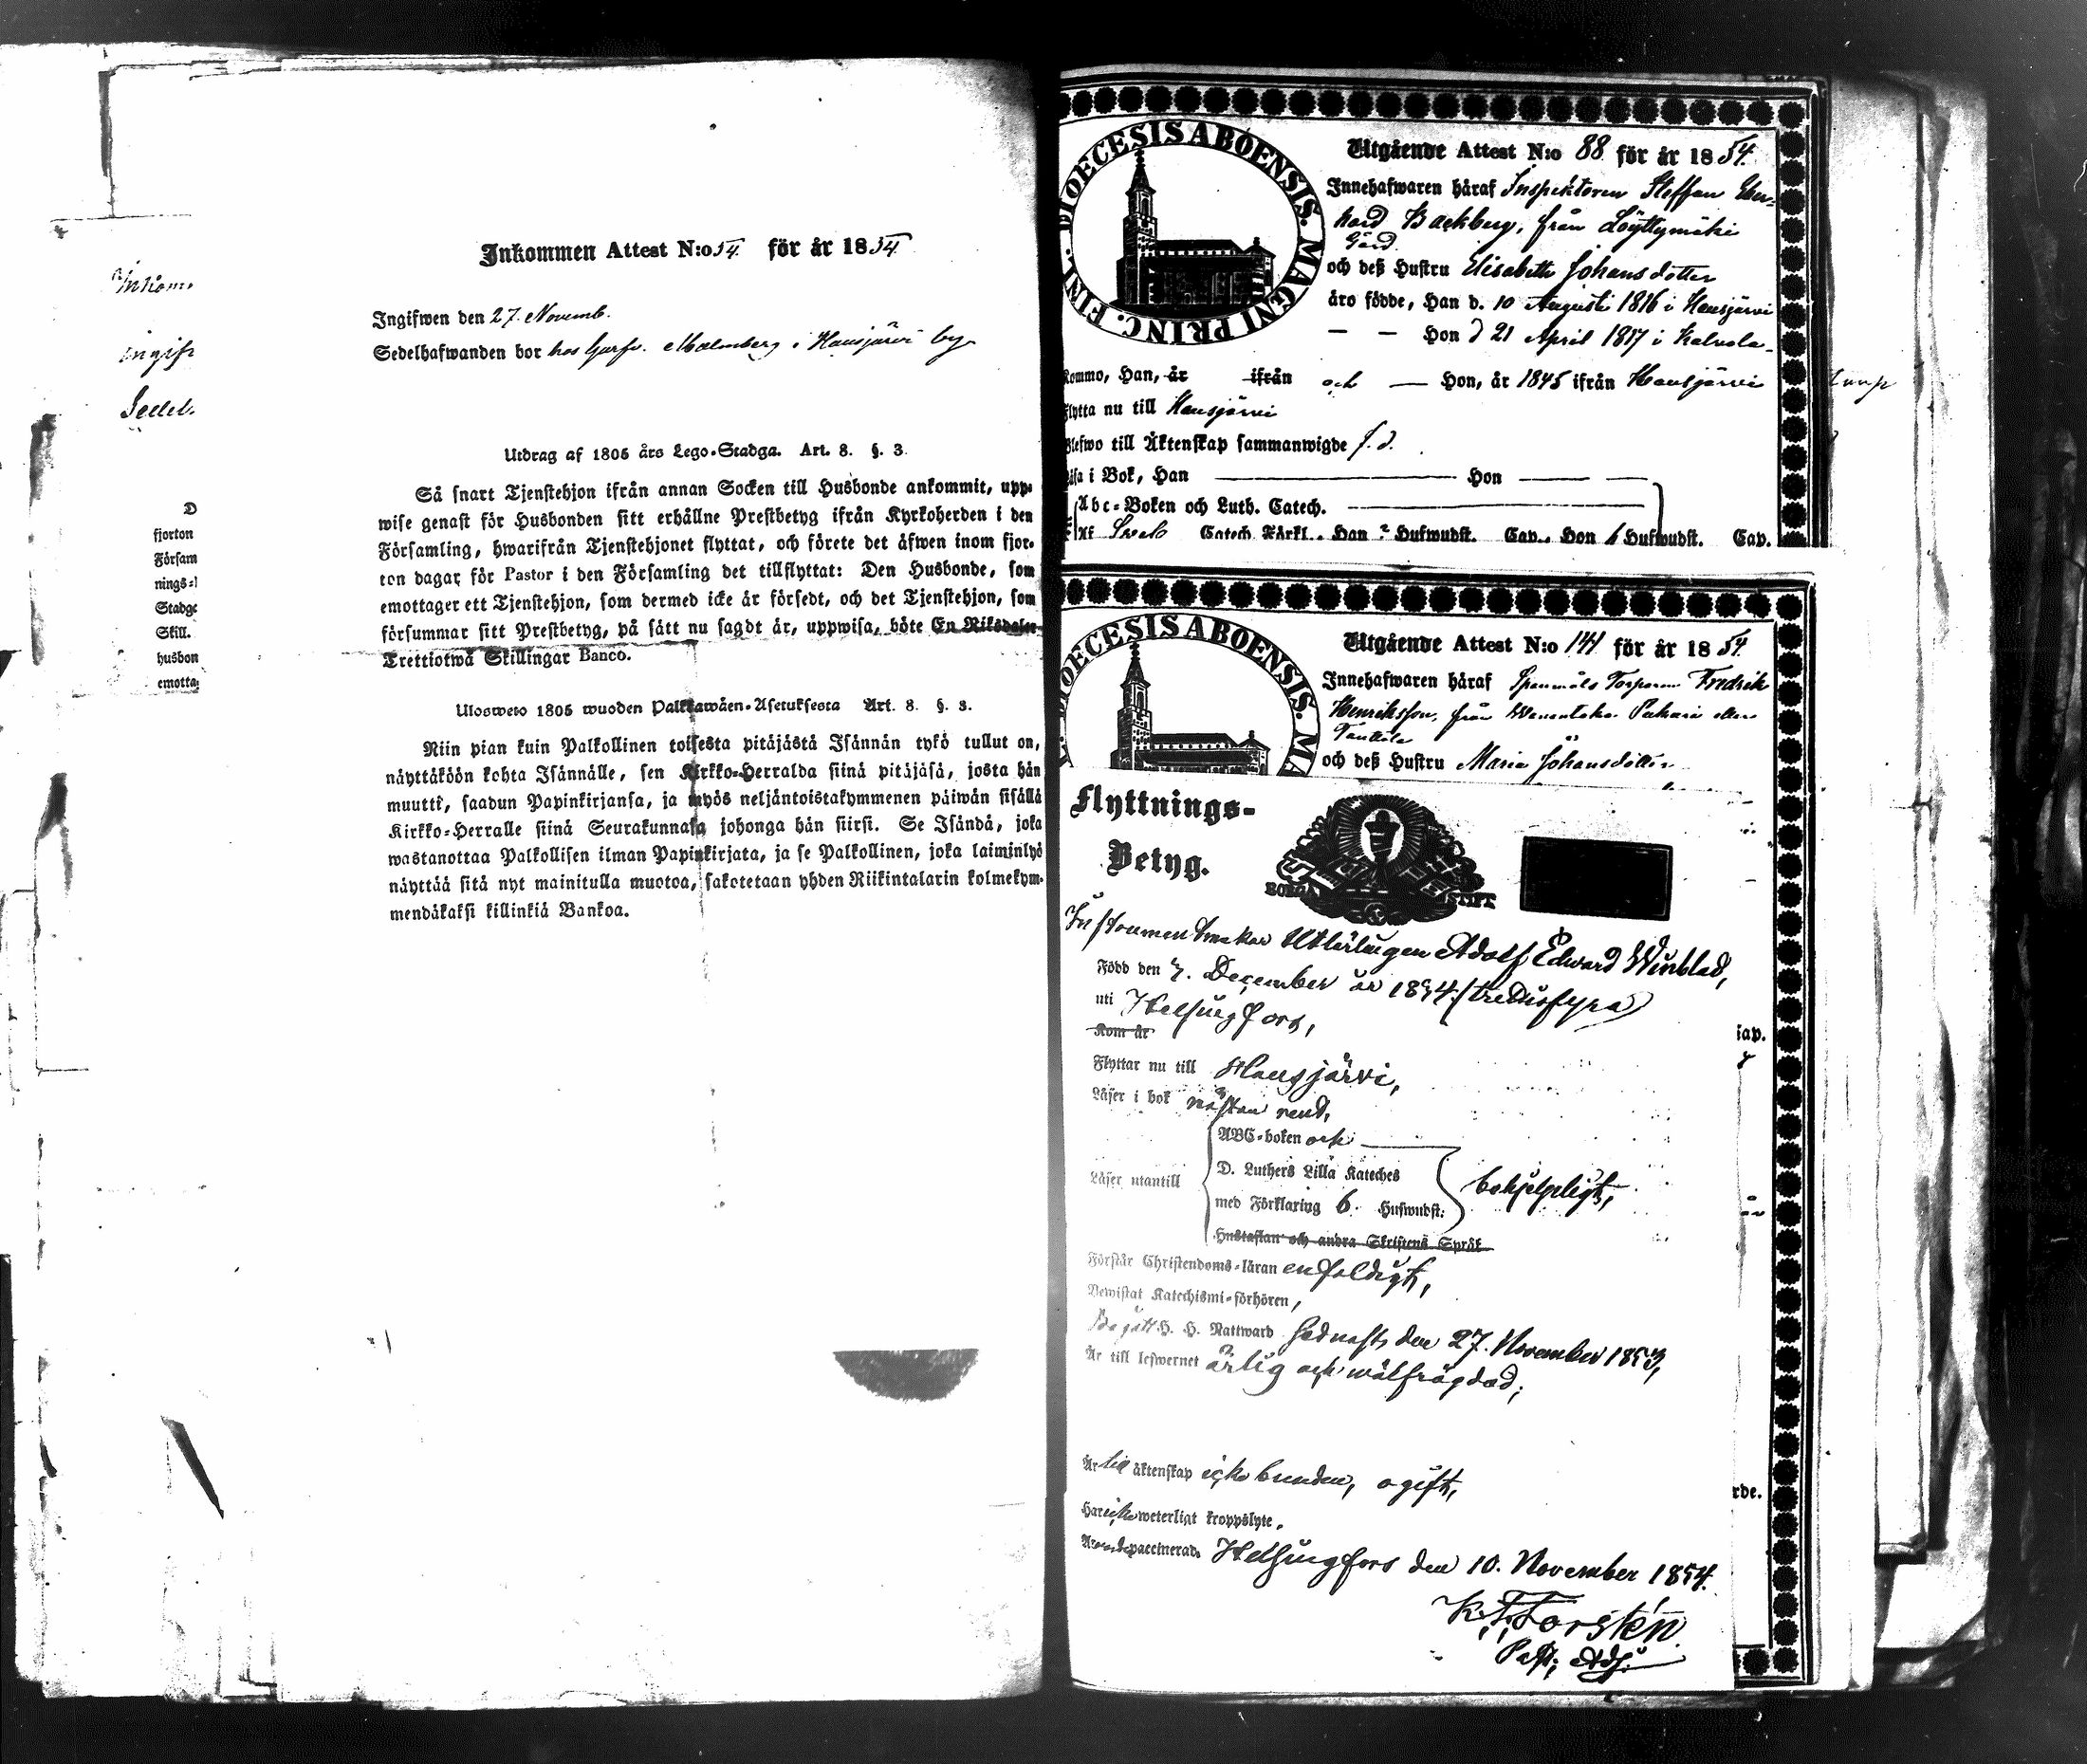 Inkommen Attest N:o 54 för år 1854
Ingifwen den 27. Novemb.
Sedelhafwanden bor hos Garfv. Malmberg i Hausjärvi by
Utdrag af 1805 års Lego-Stadga. Art. 8. §. 3.
Så snart Tjenstehjon ifrån annan Socken till Husbonde ankommit, upp-
wise genast för Husbonden sitt erhållne Prestbetyg ifrån Kyrkoherden i den
Församling, hwarifrån Tjenstehjonet flyttat, och förete det äfwen inom fjor-
ton dagar för Pastor i den Församling det tillflyttat: Den Husbonde, som
emottager ett Tjenstehjon, som dermed icke är försedt, och det Tjenstehjon, som
försummar sitt Prestbetyg, på sätt nu sagdt är, uppwisa, böte En Riksdaler
Trettiotwå Skillingar Banco.
Ulosweto 1805 wuoden Palkkawäen-Asetuksesta Art. 8. §. 3.
Niin pian kuin Palkollinen toisesta pitäjästä Isännän tykö tullut on,
näyttäköön kohta Isännälle, sen Kirkko-Herralda siinä pitäjäsä, josta hän
muutti, saadun Papinkirjansa, ja myös neljäntoistakymmenen päiwän sisällä
Kirkko-Herralle siinä Seurakunnasa johonga hän siirsi. Se Isändä, joka
wastanottaa Palkollisen ilman Papinkirjata, ja se Palkollinen, joka laiminlyö
näyttää sitä nyt mainitulla muotoa, sakotetaan yhden Riikintalarin kolmekym-
mendäkaksi killinkiä Bankoa.
Inkom
Ingif
Sedel
D
fjorton
Försam
nings-
Stadge
Skill.
husbon
emotta
DIOECESIS ABOENSIS. MAGNI PRINC. FINL.
Utgående Attest N:o 88 för år 1854.
Innehafwaren häraf Inspektoren Steffan Eber-
hard Backberg, från Löyttymäki
Gård.
och deß Hustru Elisabeth Johansdotter
äro födde, Han d. 10 Augusti 1816 i Hausjärvi
— — Hon d 21 April 1817 i Kalvola
Kommo, Han, år ifrån och — Hon, år 1845 ifrån Hausjärvi
Flytta nu till Hausjärvi
Blefwo till Äktenskap sammanwigde f. d.
Läsa i Bok, Han — Hon —
Abc-Boken och Luth. Catech.
Catech Förkl. Han Hufwudst. Cap. Hon 6 Hufwudst. Cap.
DIOECESIS ABOENSIS. MA
Utgående Attest N:o 141 för år 1854.
Innehafwaren häraf Torparen Fredrik
Henriksson, från
och deß Hustru Maria Johansdotter
Flyttnings-
Betyg.
BORGÅ STIFT
Instrumentmakar Utlärlingen Adolf Edward Winblad,
Född den 7. December år 1834 (trediofyra)
uti Helsingfors,
Kom år
Flyttar nu till Hausjärvi,
Läser i bok nästan rent,
ABC-boken och
Läser utantill
D. Luthers Lilla Kateches
med Förklaring 6. Hufwudst: behjelpligt,
Hustaflan och andra Skriftens Språk
Förstår Christendoms-läran enfaldigt,
Bewistat Katechismi-förhören,
Begått H. H. Nattward sednast den 27. November 1853,
Är till lefwernet ärlig och wälfrägdad;
Är till äktenskap icke bunden, ogift,
Har icke weterligt kroppslyte.
vaccinerad. Helsingfors den 10. November 1854.
K. T. Forstén
Past. Adj.
Cap.